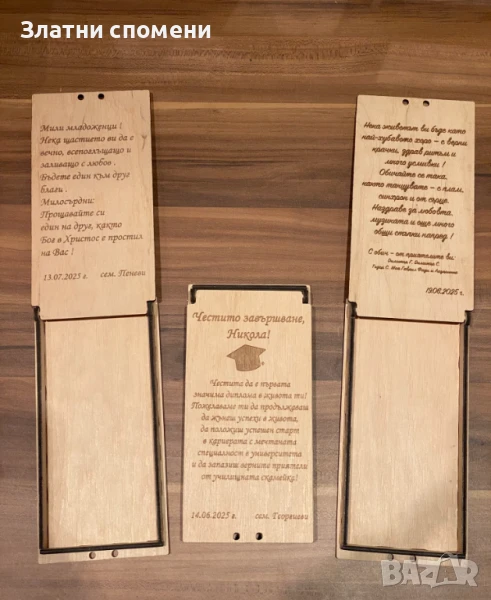 Златни спомени
Мили младоженци !
Нека щастието ви да е
вечно, всепоглъщащо и
заливащо с любов .
Бъдете един към друг
благи .
Милосърдни:
Прощавайте си
един на друг, както
Бог в Христос е простил
на Вас !
13.07.2025 г. сем. Пеневи
Честито завършване,
Никола!
Честита да е първата
значима диплома в живота ти!
Пожелаваме ти да продължаваш
да жънеш успехи в живота,
да положиш успешен старт
в кариерата с мечтаната
специалност в университета
и да запазиш верните приятели
от училищната скамейка!
14.06.2025 г. сем. Георгиеви
Нека животът ви бъде като
най-хубавото хоро – с верни
крачки, здрав ритъм и
много усмивки !
Обичайте се така,
както танцувате – с плам,
синхрон и от сърце.
Наздраве за любовта,
музиката и още много
общи стъпки напред !
С обич - от приятелите ви:
19.06.2025 г.
BAZAR